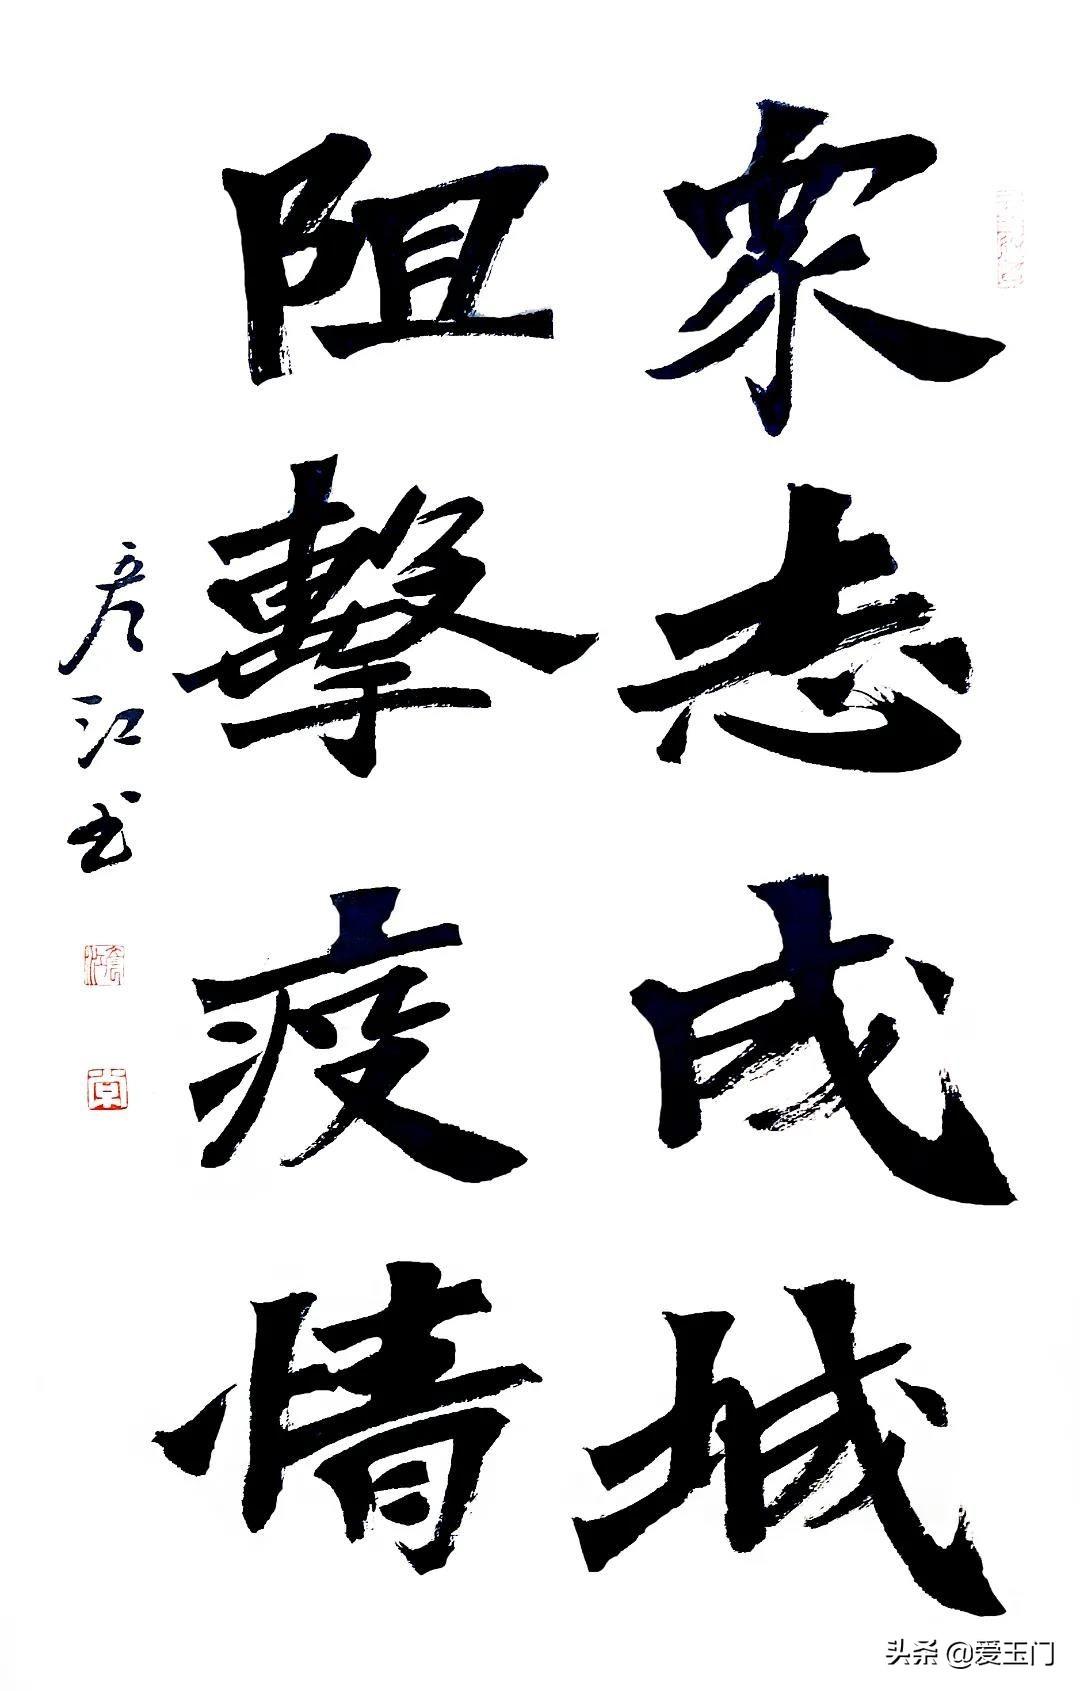 衆志成城
阻擊疫情
彦江书
头条 @爱玉门